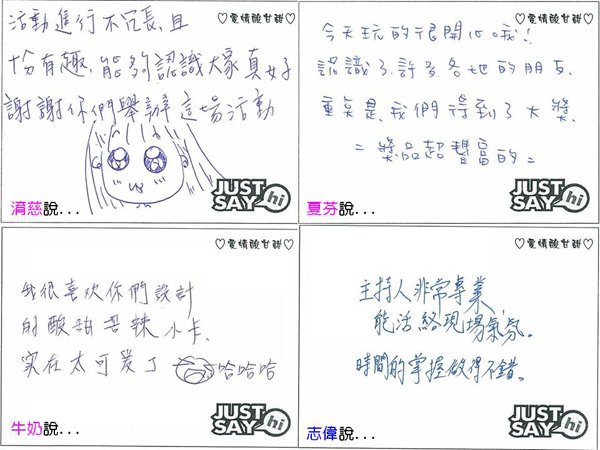 ♡電情酸甘甜♡
活動進行不冗長,且
十份有趣,能夠認識大家真好
謝謝你們舉辦這場活動
JUST
SAY hi
淯慈說...
♡電情酸甘甜♡
今天玩的很開心哦!
認識了許多各地的朋友,
重點是,我們得到了大獎,
=獎品超豐富的=
JUST
SAY hi
夏芬說...
♡電情酸甘甜♡
我很喜欢你們設計
的酸甜苦辣小卡,
实在太可爱了 哈哈哈
JUST
SAY hi
牛奶說...
♡電情酸甘甜♡
主持人非常專業,
能活絡現場氣氛.
時間的掌握做得不錯。
JUST
SAY hi
志偉說...